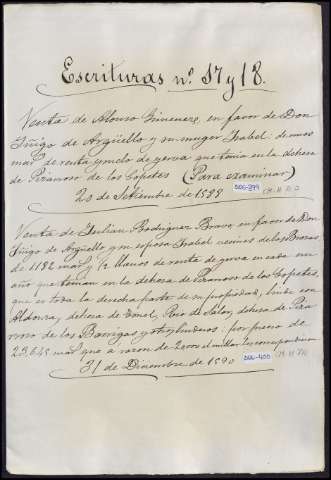 Escrituras nº 17 y 18.
Venta de Alonso Gimenez, en favor de Don
Iñigo de Argüello y su muger Isabel de unos
mas de renta y suelo de yerva que tenia en la dehesa
de Piranoso de los Copetes (Para examinar)
20 de Setiembre de 1588
DOC-399
Venta de Julian Rodriguez Bravo en favor de Don
Iñigo de Argüello y su esposa Isabel vecinos de las Brozas
de 1182 mas y ½ blancas de renta de yerva en cada un
año que tenian en la dehesa de Piranoso de los Copetes,
que es toda la decha parte de su propiedad, linde con
Aldonza, dehesa de Rio de Salor, dehesa de Pira
noso de las Barrigas y otros linderos. por precio de
23.645 mas que á razon de 20000 el millar
DOC-400
31 de Diciembre de 1590